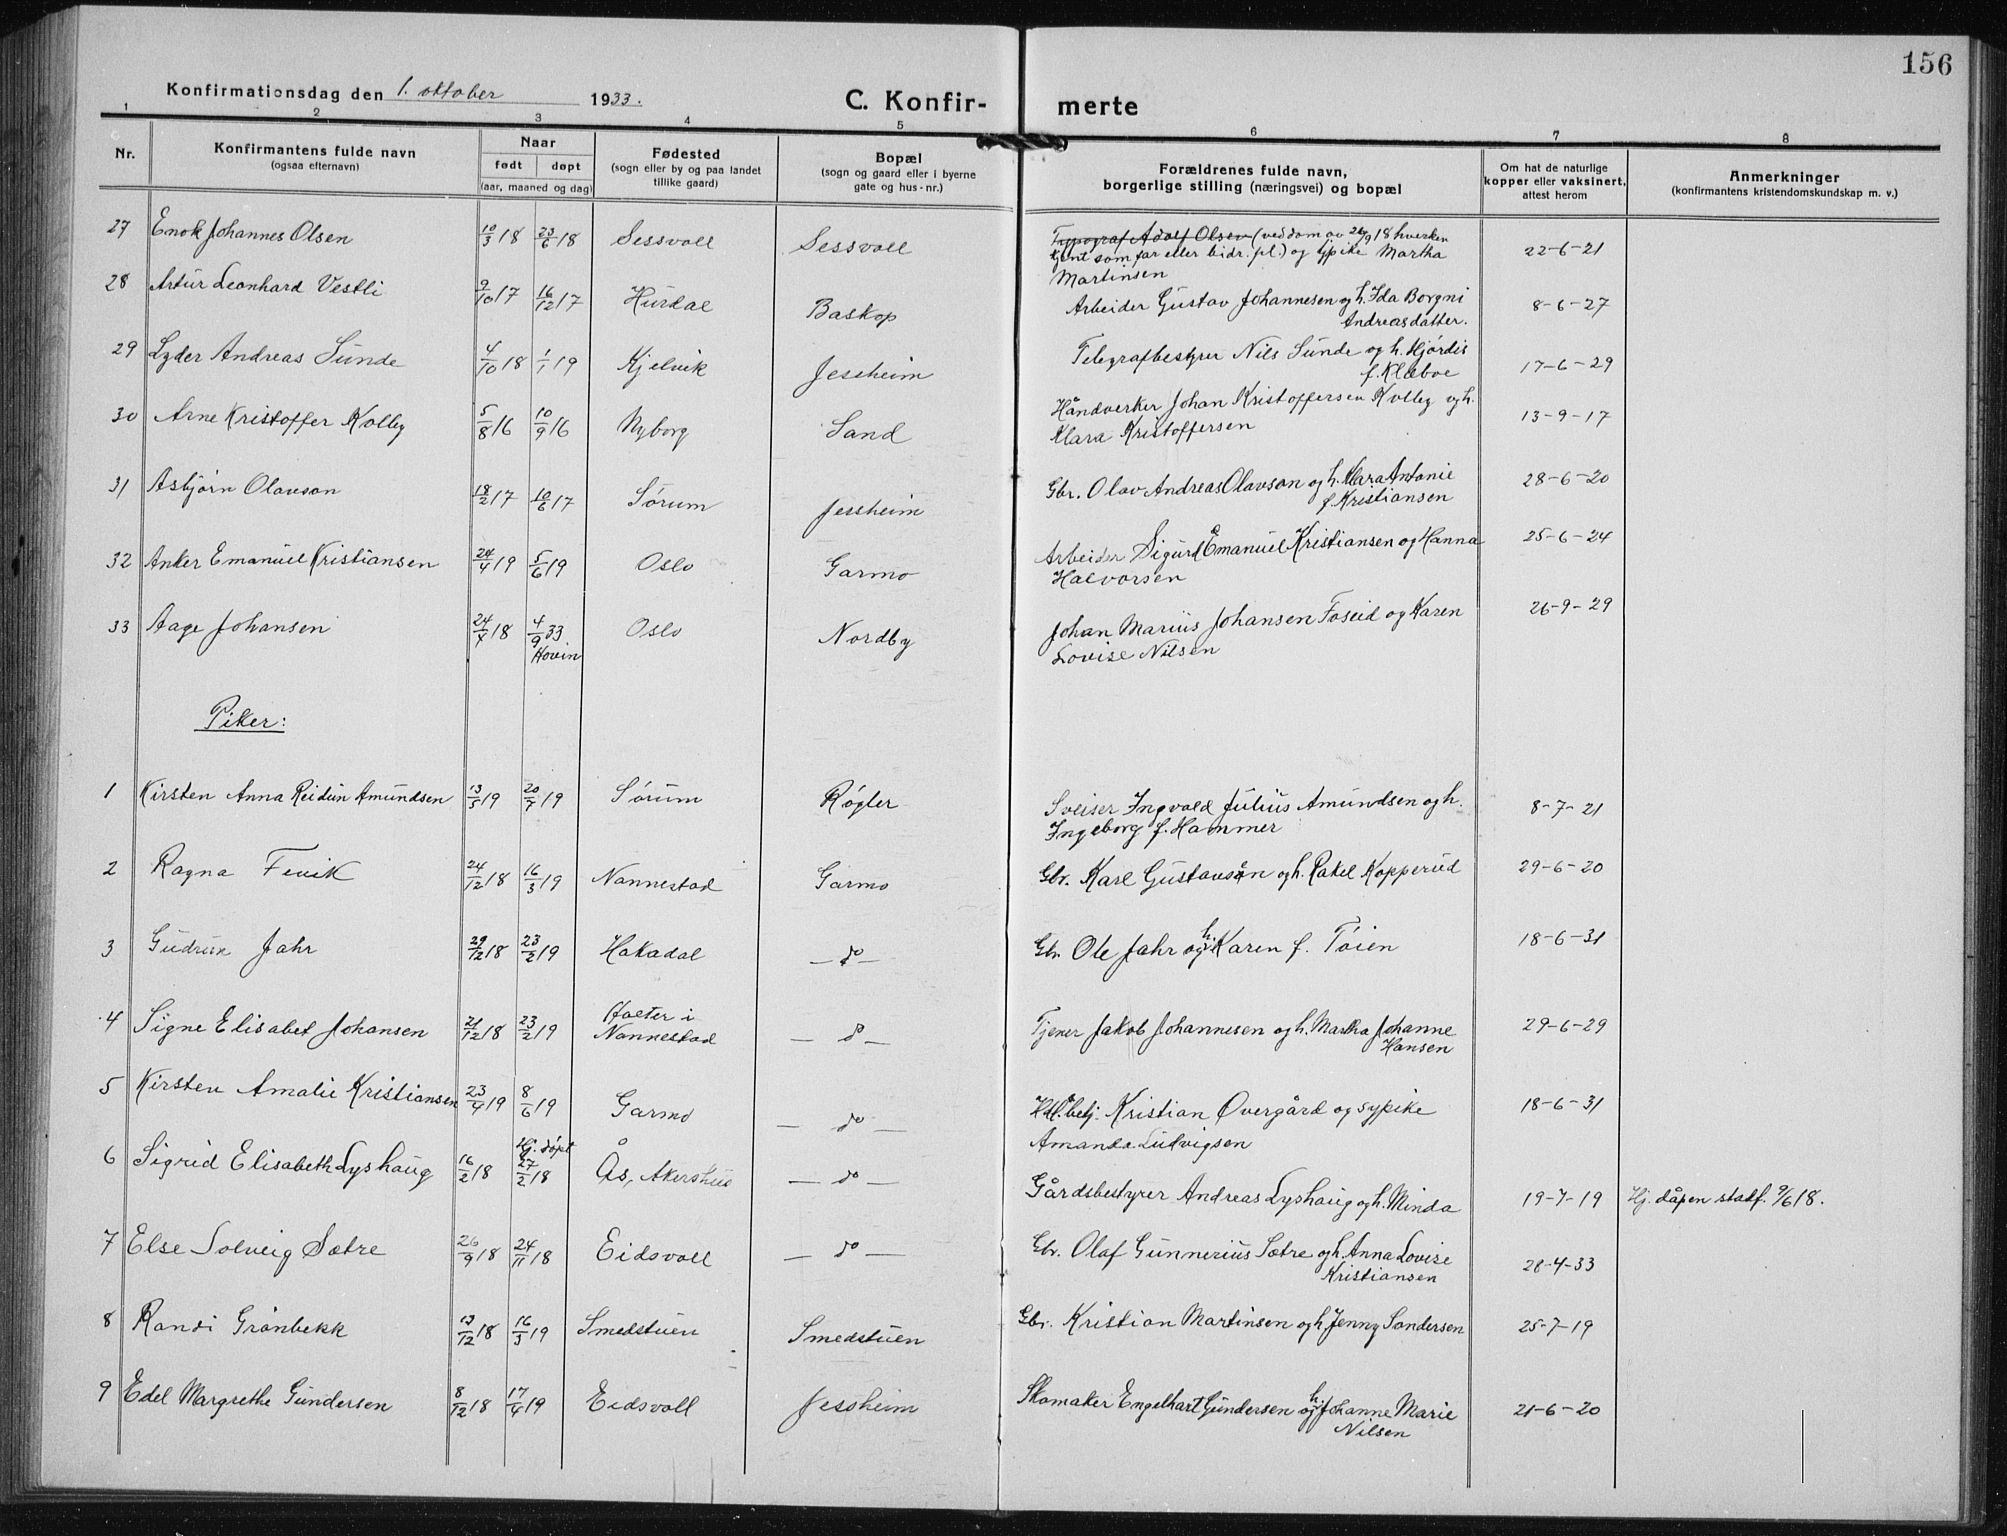 156
Konfirmationsdag den 1. oktober 1933.
C. Konfir- merte
1 2 3 4 5 6 7 8
Nr.
Konfirmantens fulde navn
(ogsaa efternavn)
Naar
født døpt
(aar, maaned og dag)
Fødested
(sogn eller by og paa landet
tillike gaard)
Bopæl
(sogn og gaard eller i byerne
gate og hus-nr.)
Forældrenes fulde navn,
borgerlige stilling (næringsvei) og bopæl
Om hat de naturlige
kopper eller vaksinert,
attest herom
Anmerkninger
(konfirmantens kristendomskundskap m. v.)
27 Enok Johannes Olsen 10/3 18 23/6 18 Sessvoll Sessvoll Typograf Adolf Olsen (ved dom av 26/9 18 hverken
kjent som far eller bidr. pl.) og tjpike Martha
Martinsen 22-6-21
28 Artur Leonhard Vestli 9/10 17 16/12 17 Hurdal Baskop Arbeider Gustav Johannesen og h. Ida Borgni
Andreasdatter. 8-6-27
29 Lyder Andreas Sunde 4/10 18 1/1 19 Kjelvik Jessheim Telegrafbestyrer Nils Sunde og h. Hjördis
f. Klæboe 17-6-29
30 Arne Kristoffer Kolby 5/8 16 10/9 16 Nyborg Sand Håndverker Johan Kristoffersen Kolby og h.
Klara Kristoffersen 13-9-17
31 Asbjörn Olavson 18/2 17 10/6 17 Sørum Jessheim Gbr. Olav Andreas Olavson og h. Klara Antonie
f. Kristiansen 28-6-20
32 Anker Emanuel Kristiansen 24/4 19 5/6 19 Oslo Garmo Arbeider Sigurd Emanuel Kristiansen og Hanna
Halvorsen 25-6-24
33 Aage Johansen 24/4 18 4/9 33
Hovin Oslo Nordby Johan Marius Johansen Foseid og Karen
Lovise Nilsen 26-9-29
Piker:
1 Kirsten Anna Reidun Amundsen 13/5 19 20/7 19 Sørum Røgler Sveiser Ingvald Julius Amundsen og h.
Ingeborg f. Hammer 8-7-21
2 Ragna Fevik 24/12 18 16/3 19 Nannestad Garmo Gbr. Karl Gustavson og h. Rakel Kopperud 29-6-20
3 Gudrun Jahr 29/12 18 23/2 19 Hakadal — do — Gbr. Ole Jahr og h. Karen f. Töien 18-6-31
4 Signe Elisabet Johansen 21/12 18 23/2 19 Holter i
Nannestad — do — Tjener Jakob Johannesen og h. Martha Johanne
Hansen 29-6-29
5 Kirsten Amalie Kristiansen 23/4 19 8/6 19 Garmo — do — Hdl.betj. Kristian Øvergård og sypike
Amanda Ludvigsen 18-6-31
6 Sigrid Elisabeth Lyshaug 16/2 18 Hj. döpt
27/2 18 Ås, Akershus — do — Gårdsbestyrer Andreas Lyshaug og h. Minda 19-7-19 Hj. dåpen stadf. 9/6 18.
7 Else Solveig Sætre 26/9 18 24/11 18 Eidsvoll — do — Gbr. Olaf Gunnerius Sætre og h. Anna Lovise
Kristiansen 28-4-33
8 Randi Grönbekk 13/12 18 16/3 19 Smedstuen Smedstuen Gbr. Kristian Martinsen og h. Jenny Sandersen 25-7-19
9 Edel Margrethe Gundersen 8/12 18 17/4 19 Eidsvoll Jessheim Skomaker Engelhart Gundersen og h. Johanne Marie
Nilsen 21-6-20